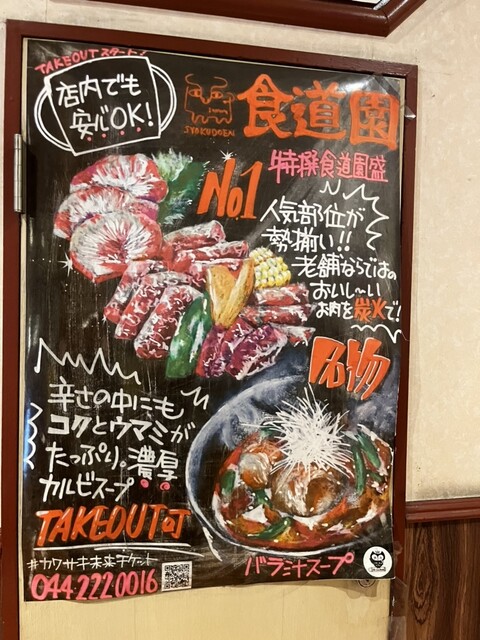 TAKEOUTスタート!
店内でも
安心OK!
SYOKUDOEN
食道園
特撰食道園盛
No.1
人気部位が
勢揃い!!
老舗ならではの
おいし〜い
お肉を炭火で!
名物
辛さの中にも
コクとウマミが
たっぷり。濃厚
カルビスープ
TAKEOUT可
#カワサキ未来チケット
044 222 0016
バラミナスープ